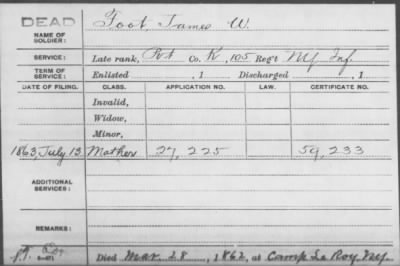 DEAD
NAME OF SOLDIER: Foot, James W.
SERVICE: Late rank, Pvt Co. K, 105 Reg't NY Inf.
TERM OF SERVICE: Enlisted , 1 Discharged , 1
DATE OF FILING. CLASS. APPLICATION NO. LAW. CERTIFICATE NO.
Invalid,
Widow,
Minor,
1863 July 13 Mother 27,225 59,233
ADDITIONAL SERVICES:
REMARKS:
Died Mar. 28, 1862, at Camp Le Roy NY.